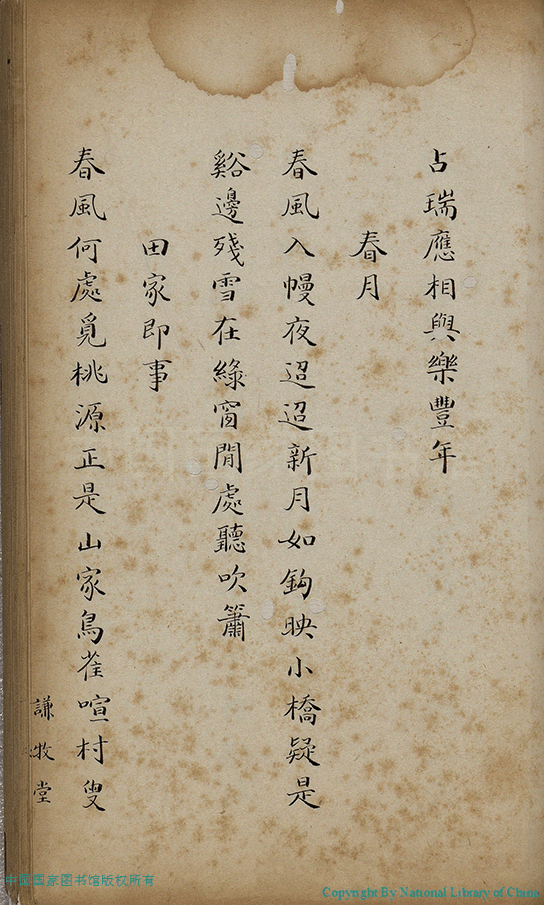 占瑞應相與樂豐年
春月
春風入幔夜迢迢新月如鈎映小橋疑是
谿邊殘雪在綠窗閒處聽吹簫
田家即事
春風何處覓桃源正是山家鳥雀喧村叟
謙牧堂
中國國家图书馆版权所有
Copyright By National Library of China